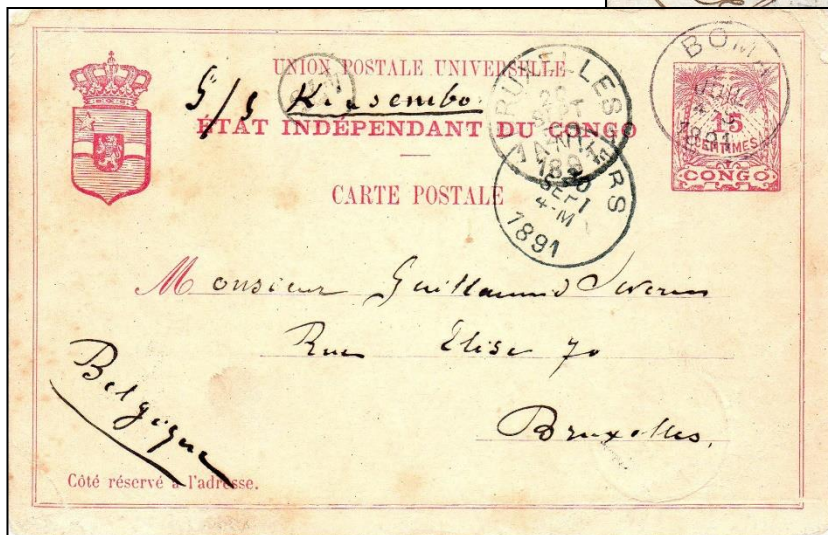 UNION POSTALE UNIVERSELLE
S/S Kinsembo
ÉTAT INDÉPENDANT DU CONGO
CARTE POSTALE
BOMA
1891
15
CENTIMES
CONGO
BRUXELLES
ANVERS
SEPT
4-M
1891
Monsieur Guillaume Severin
Rue Elise 70
Bruxelles.
Belgique
Côté réservé à l'adresse.